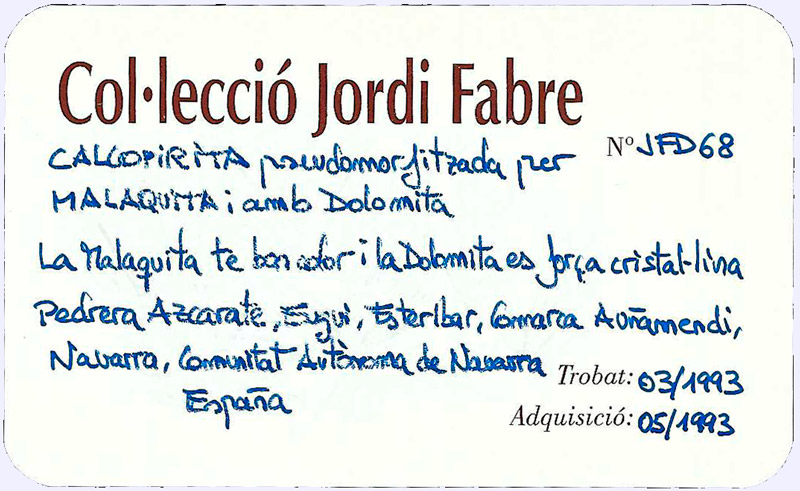 Col·lecció Jordi Fabre
CALCOPIRITA pseudomorfitzada per Nº JFD68
MALAQUITA i amb Dolomita
La Malaquita te bon color i la Dolomita es força cristal·lina
Pedrera Azcarate, Eugui, Esteribar, Comarca Auñamendi,
Navarra, Comunitat Autònoma de Navarra
España
Trobat: 03/1993
Adquisició: 05/1993